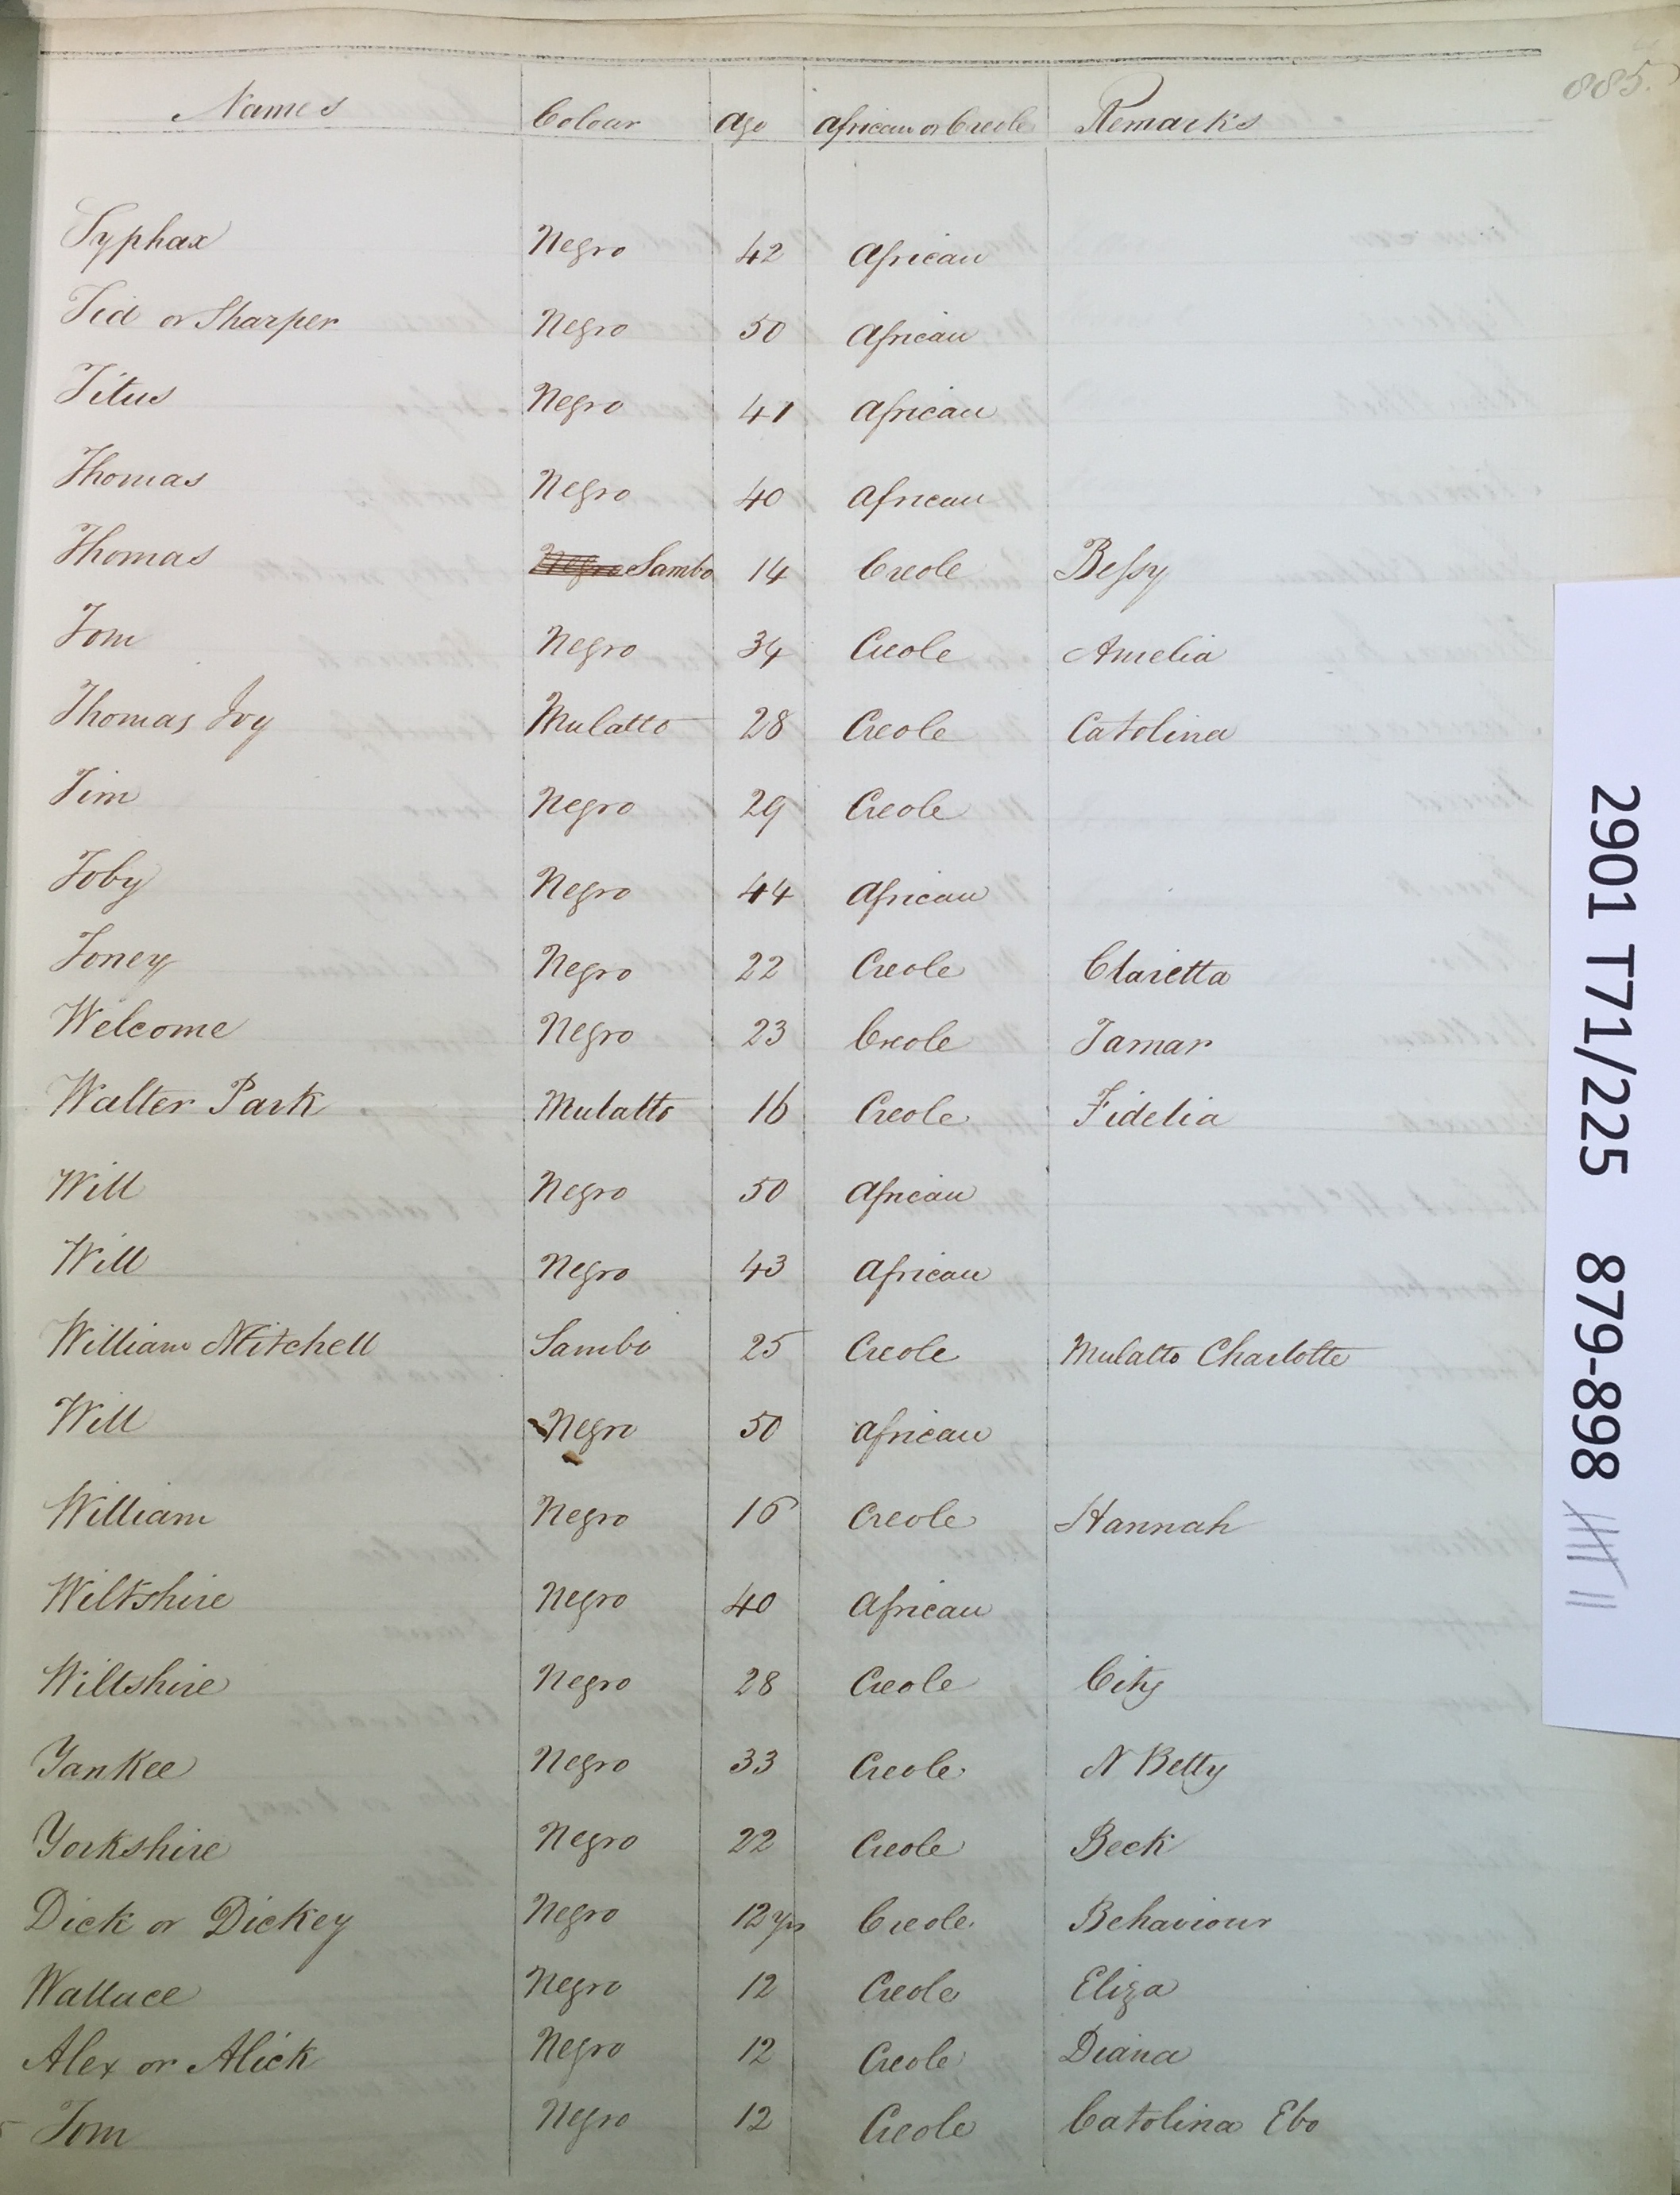 885.
Names Colour Age African or Creole Remarks
Syphax Negro 42 African
Tid or Sharper Negro 50 African
Titus Negro 41 African
Thomas Negro 40 African
Thomas Negro Sambo 14 Creole Bessy
Tom Negro 34 Creole Amelia
Thomas Ivy Mulatto 28 Creole Catolina
Tim Negro 29 Creole
Toby Negro 44 African
Toney Negro 22 Creole Claretta
Welcome Negro 23 Creole Tamar
Walter Park Mulatto 16 Creole Fidelia
Will Negro 50 African
Will Negro 43 African
William Mitchell Sambo 25 Creole Mulatto Charlotte
Will Negro 50 African
William Negro 16 Creole Hannah
Wiltshire Negro 40 African
Wiltshire Negro 28 Creole City
Yankee Negro 33 Creole N Betty
Yorkshire Negro 22 Creole Beck
Dick or Dickey Negro 12 yrs Creole Behaviour
Wallace Negro 12 Creole Eliza
Alex or Alick Negro 12 Creole Diana
Tom Negro 12 Creole Catolina Ebo
2901 T71/225 879-898